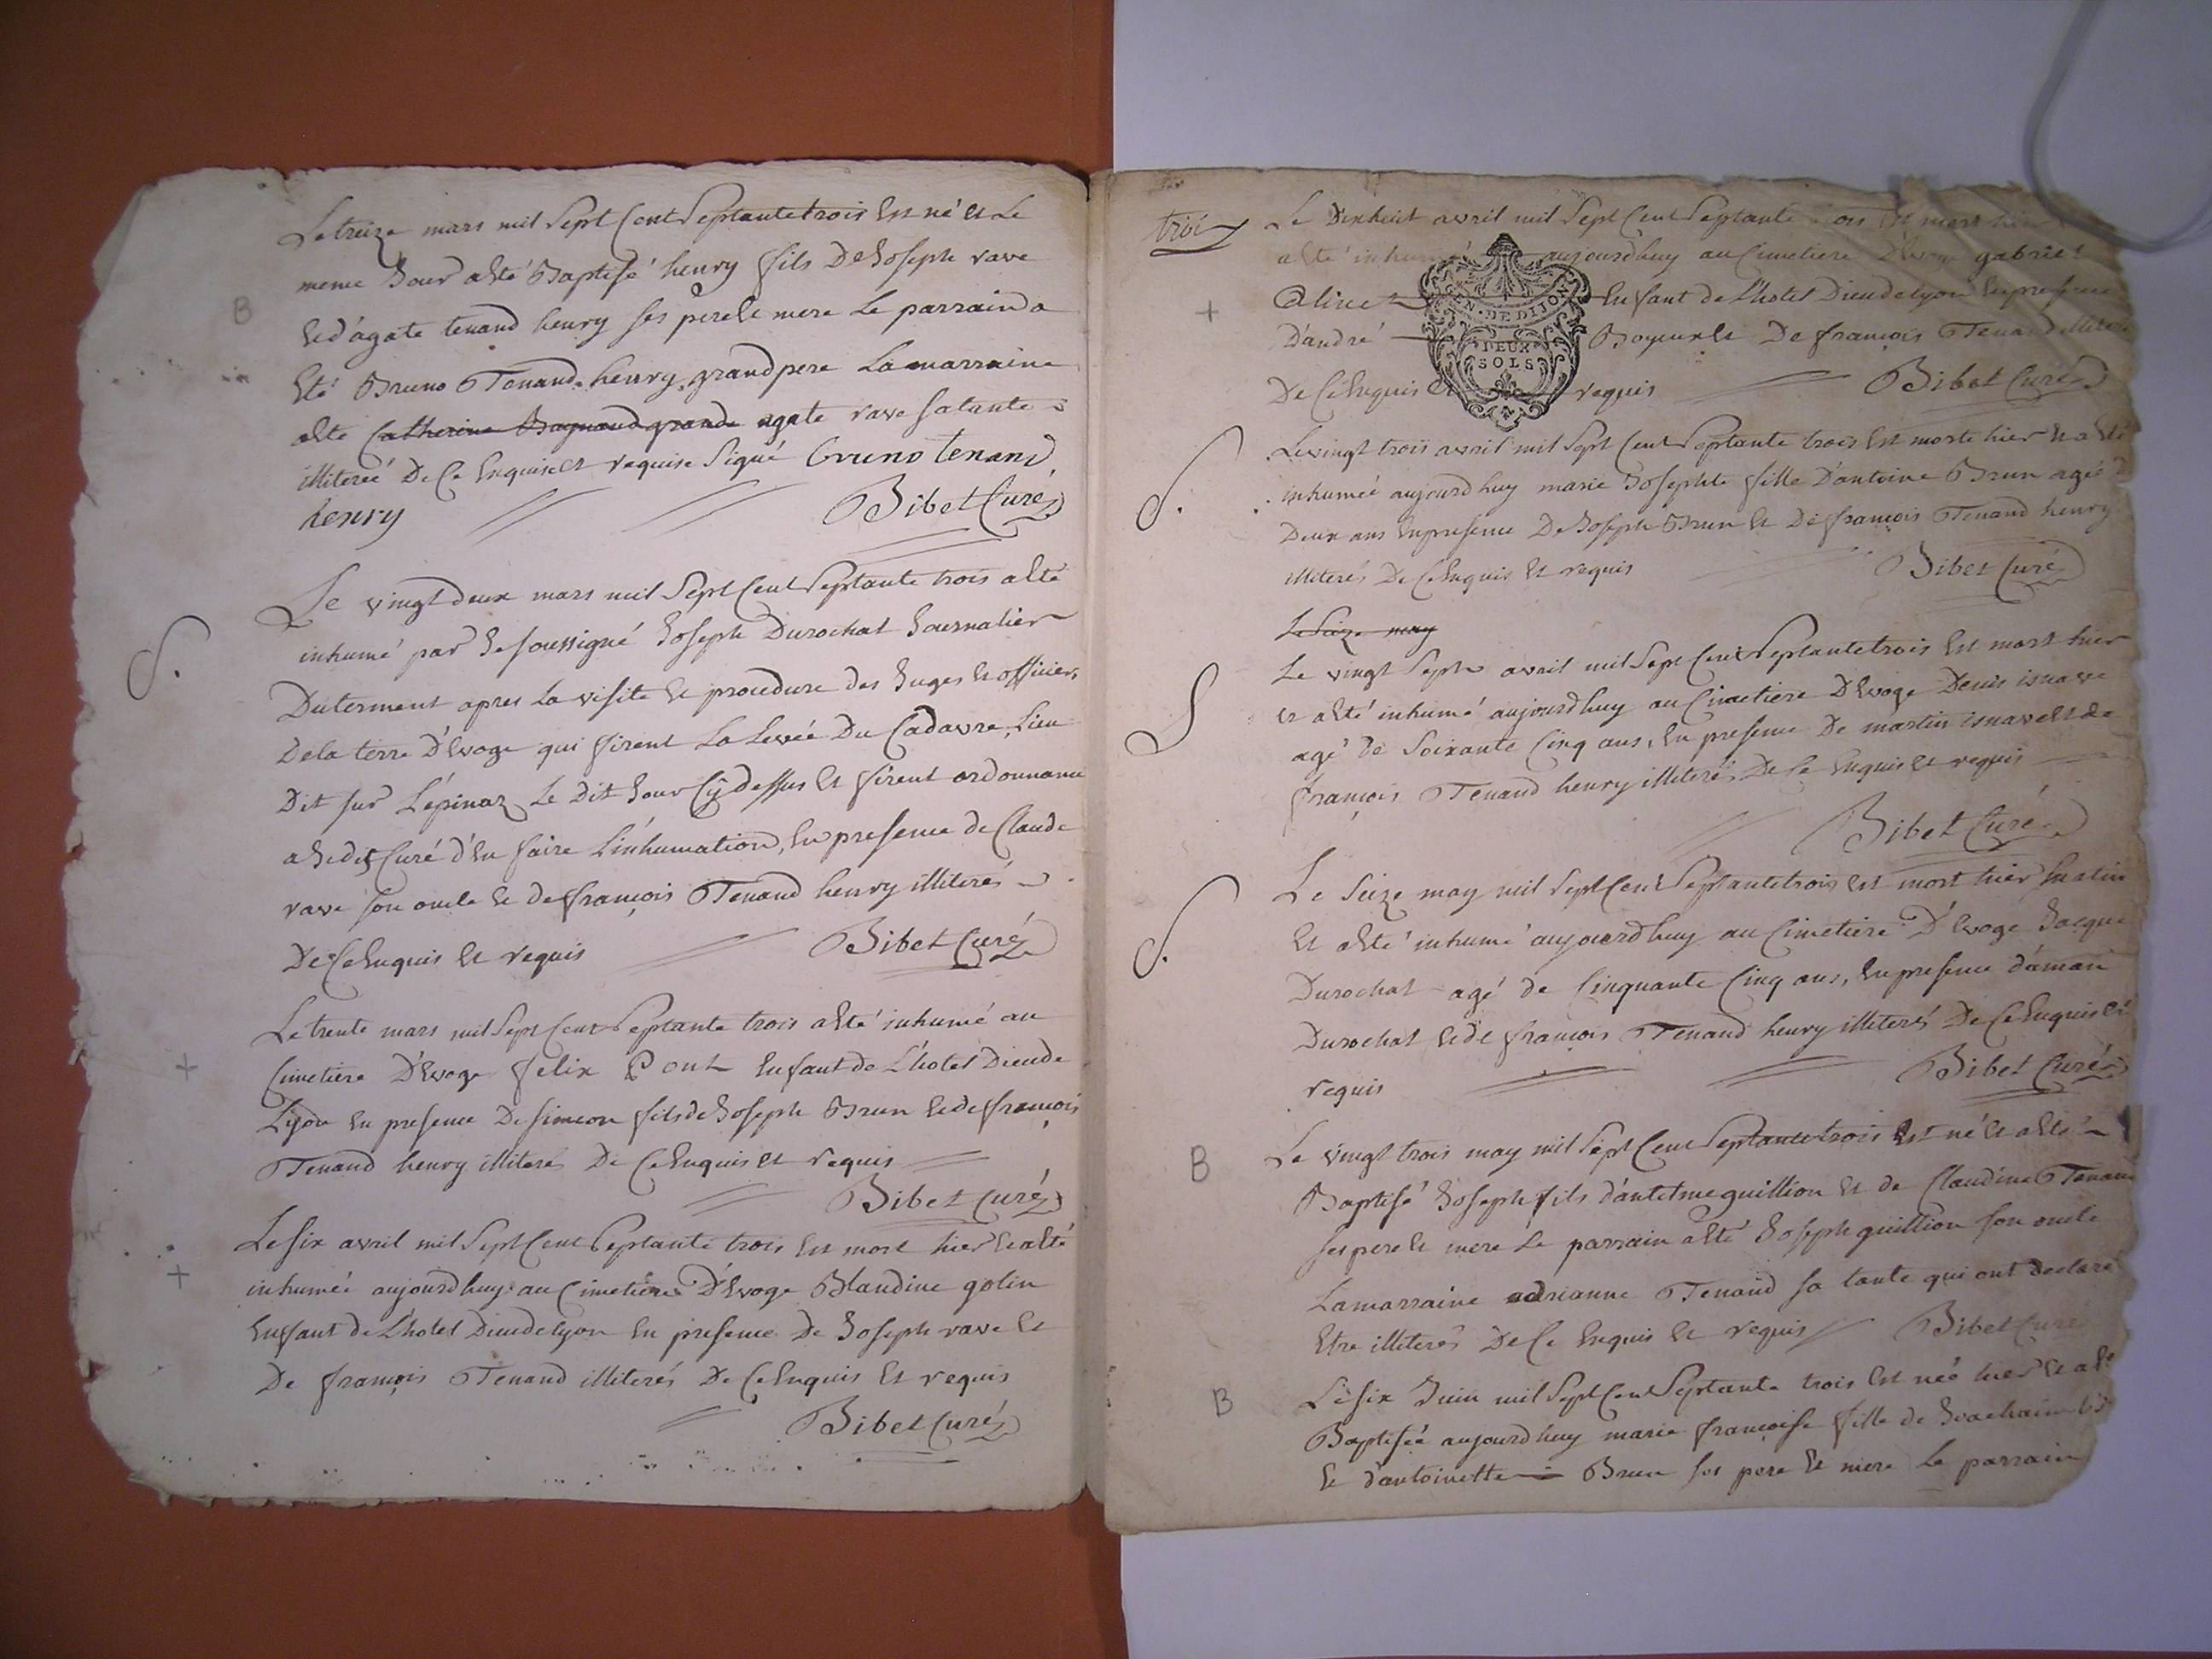 B
Le treize mars mil Sept Cent Septante trois Est né et Le
meme Jour aEté Baptisé henry fils De Joseph rave
Et d'agate tenand henry ses pere Et mere Le parrain a
Eté Bruno Tenand henry grand pere La marraine
aEté Catherine Baynaud grande agate rave sa tante
illiterée De Ce Enquise et requise Signé Bruno tenand
henry Bibet Curé
Le vingt deux mars mil Sept Cent Septante trois aEté
inhumé par Je soussigné Joseph Durochat Journalier
Duterment apres La visite Et procedure des Juges Et officiers
De la terre D'Evoge qui firent La Levée Du Cadavre, Lieu
Dit sur L'épinaz Le Dit Jour Cy dessus Et firent ordonnance
a Je dit Curé d'En faire L'inhumation, En presence de Claude
rave son oncle Et de françois Tenand henry illiterés
De Ce Enquis Et requis Bibet Curé
+
Le trente mars mil Sept Cent Septante trois aEté inhumé au
Cimetiere D'Evoge felix Pont Enfant de L'hotel Dieu de
Lyon En presence De simeon fils de Joseph Brun Et de françois
Tenand henry illiterés De Ce Enquis Et requis
Bibet Curé
+
Le six avril mil Sept Cent Septante trois Est mort hier Et aEté
inhumée aujourd huy au Cimetiere D'Evoge Blandine golin
Enfant de L'hotel Dieu de lyon En presence De Joseph rave Et
De françois Tenand illiterés De Ce Enquis Et requis
Bibet Curé
trois
Le Dixhuit avril mil Sept Cent Septante trois Est mort hier
aEté inhumé aujourdhuy au Cimetiere D'Evoge gabriel
+
Aline Enfant de L'hotel Dieu de lyon En presence
D'andré Boyeux Et De françois Tenand illiterés
De Ce Enquis Et requis Bibet Curé
GEN · DE DIJON
DEUX
SOLS
Le vingt trois avril mil Sept Cent Septante trois Est morte hier Et aEté
inhumée aujourd huy marie Josephte fille D'antoine Brun agée D
Deux ans En presence De Joseph Brun Et De françois Tenand henry
illiterés De Ce Enquis Et requis Bibet Curé
Le Seize may
Le vingt Sept avril mil Sept Cent Septante trois Est mort hier
Et aEté inhumé aujourdhuy au Cimetiere D'Evoge Denis isnave
agé de Soixante Cinq ans, En presence De martin isnave Et de
françois Tenand henry illiterés De Ce Enquis Et requis
Bibet Curé
Le Seize may mil Sept Cent Septante trois Est mort hier
Et aEté inhumé aujourd huy au Cimetiere D'Evoge Jacque
Durochat agé de Cinquante Cinq ans, En presence d'aman
Durochat Et de françois Tenand henry illiterés De Ce Enquis Et
requis Bibet Curé
B
Le vingt trois may mil Sept Cent Septante trois Est né Et aEté
Baptisé Joseph fils d'antelme guillion Et de Claudine Tenand
ses pere Et mere Le parrain aEté Joseph guillion son oncle
La marraine adrianne Tenand sa tante qui ont declaré
Etre illiterés De Ce Enquis Et requis Bibet Curé
B
Le six Juin mil Sept Cent Septante trois Est née hier Et aEté
Baptisée aujourd huy marie françoise fille de Joachaim
Et d'antoinette Brun ses pere Et mere Le parrain